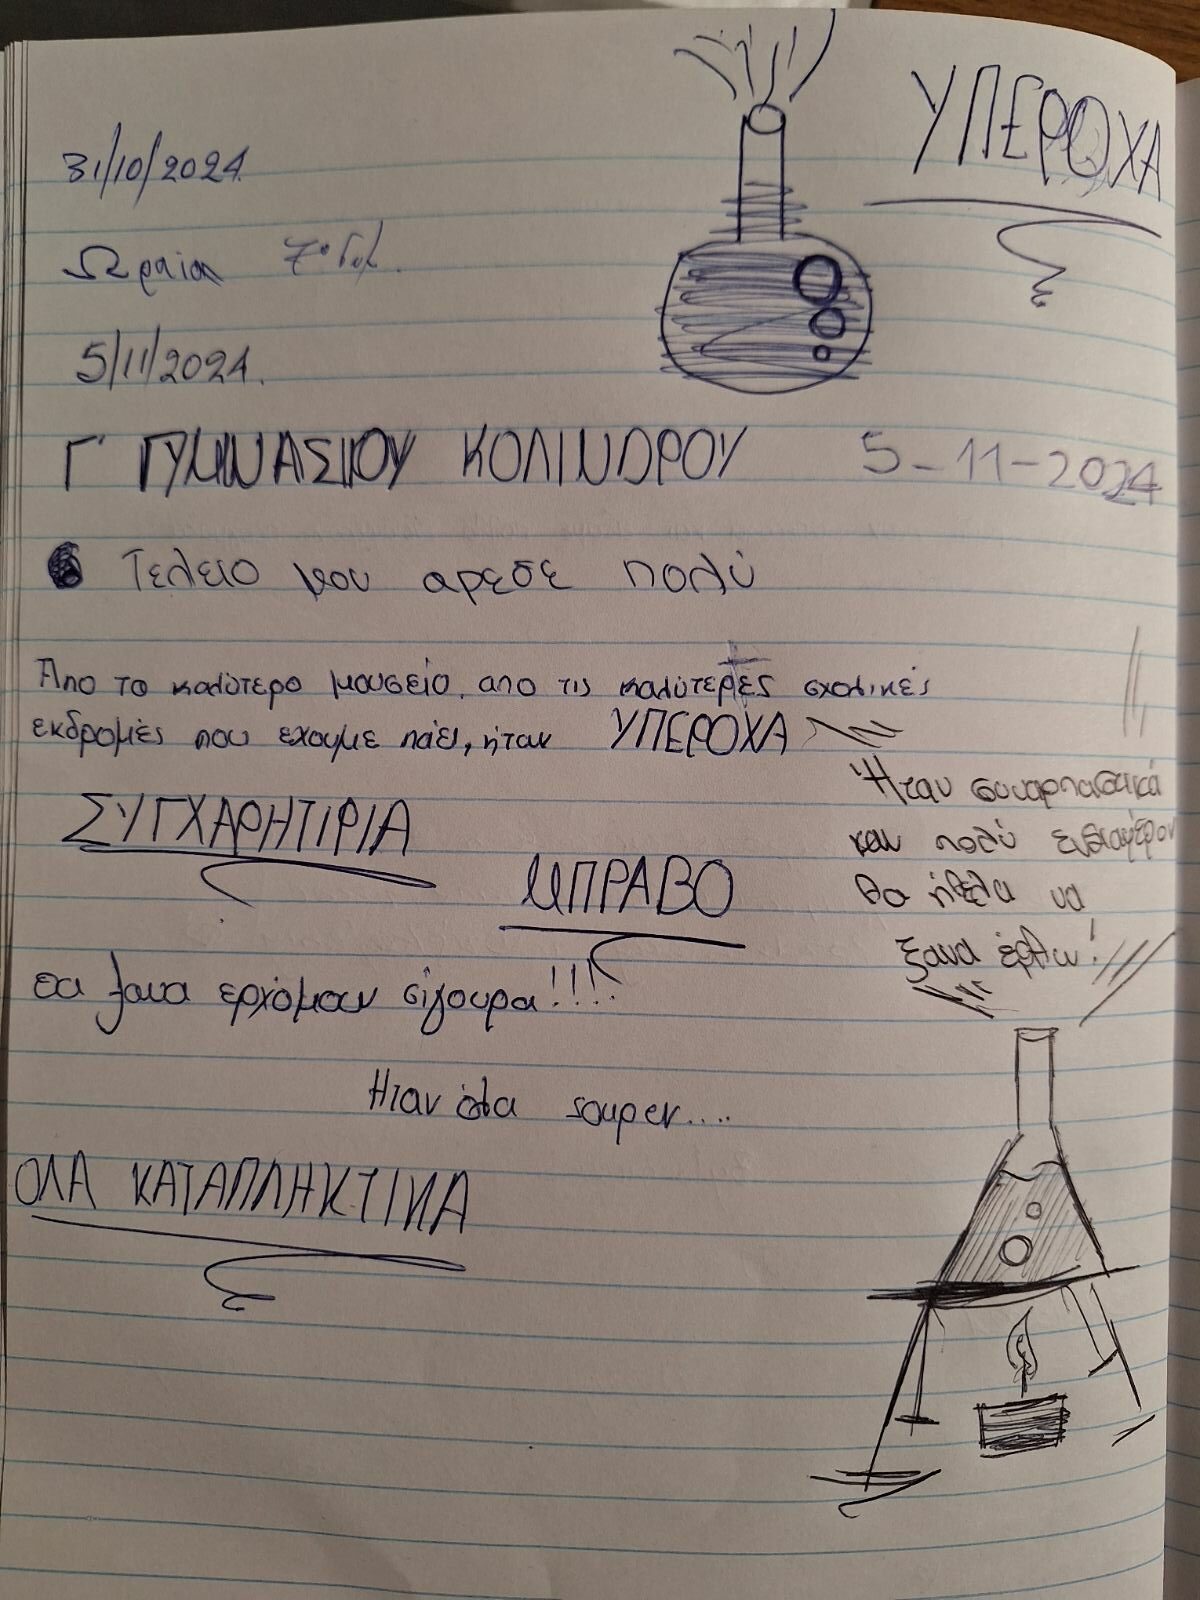 ΥΠΕΡΟΧΑ
31/10/2024
Ωραία 7ο
5/11/2024.
Γ' ΓΥΜΝΑΣΙΟΥ ΚΟΛΙΝΔΡΟΥ 5-11-2024
Τελειο μου αρεσε πολύ
Απο το καλύτερο μουσείο, απο τις καλύτερες σχολικές
εκδρομές που εχουμε πάει, ήταν ΥΠΕΡΟΧΑ
Ήταν συναρπαστικά
και πολύ ενδιαφέρον
θα ήθελα να
ξανα έρθω!
ΣΥΓΧΑΡΗΤΙΡΙΑ
ΜΠΡΑΒΟ
θα ξανα ερχόμουν σίγουρα!!!!
Ηταν όλα σουπερ....
ΟΛΑ ΚΑΤΑΠΛΗΚΤΙΚΑ